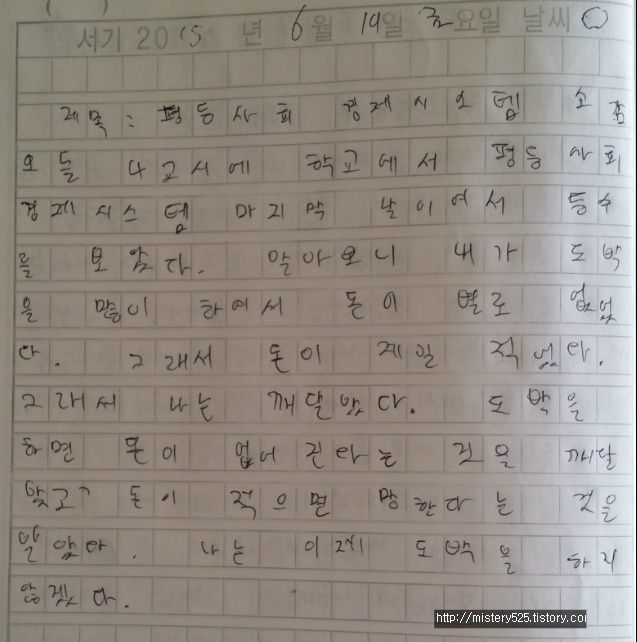 서기 2015 년 6월 19일 금요일 날씨
제목: 평등사회 경제시스템 소감
오늘 4교시에 학교에서 평등사회
경제시스템 마지막 날이여서 등수
를 보았다. 알아보니 내가 도박
을 많이 하여서 돈이 별로 없었
다. 그래서 돈이 제일 적었다.
그래서 나는 깨달았다. 도박을
하면 돈이 없어진다는 것을 깨달
았고 돈이 적으면 망한다는 것을
알았다. 나는 이제 도박을 하지
않겠다.
http://mistery525.tistory.com